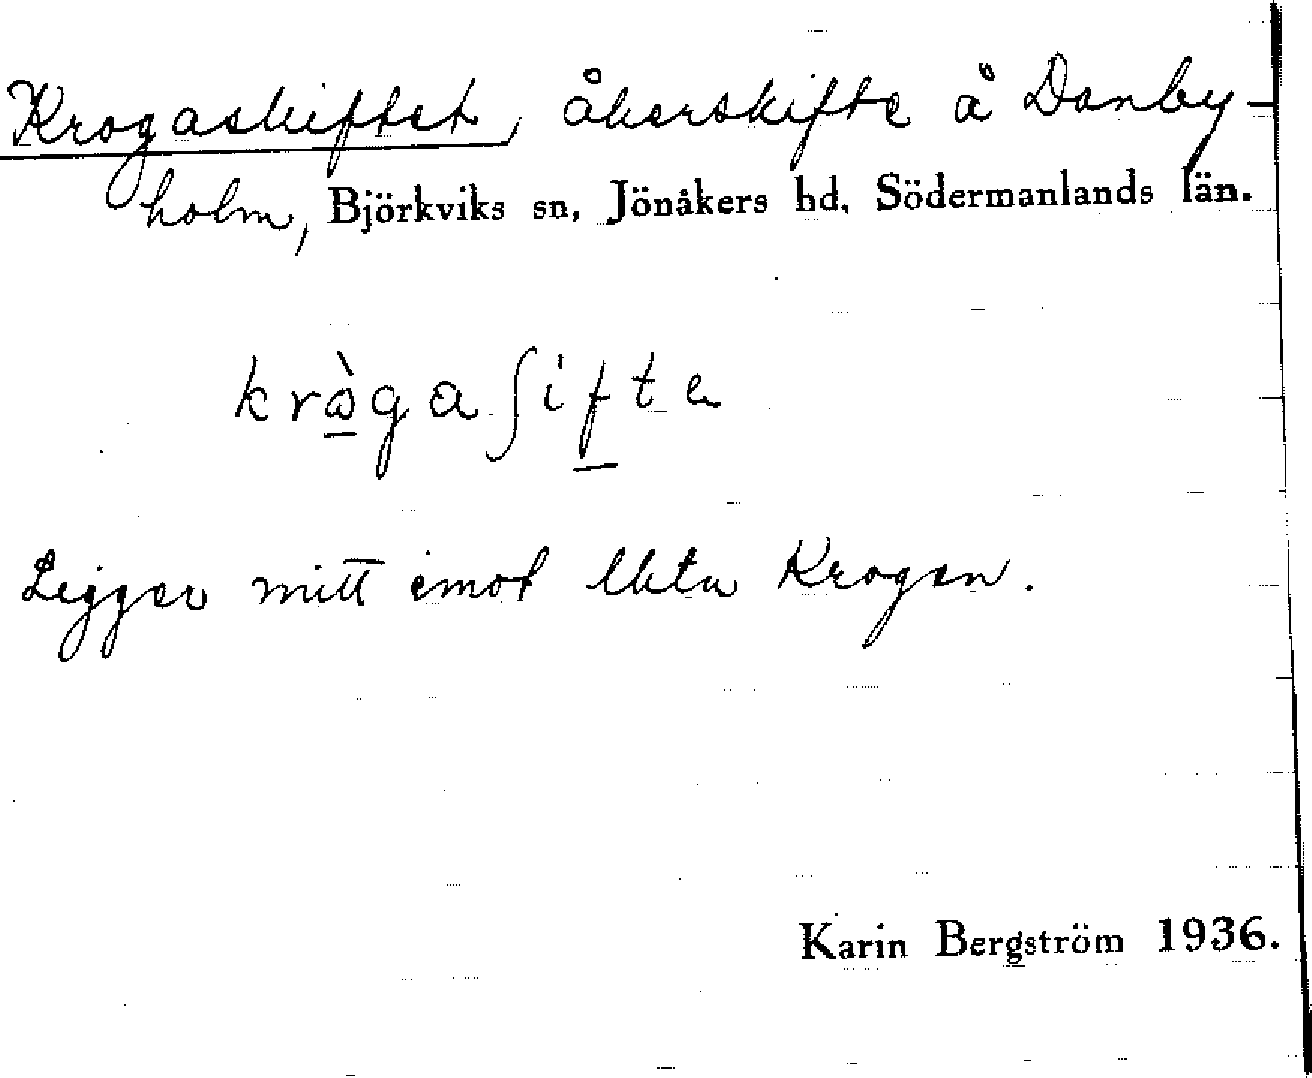 Krogaskiftet, åkerskifte å Danby-
holm, Björkviks sn, Jönåkers hd, Södermanlands län.
krògaʃifte
Ligger mitt emot Krogen.
Karin Bergström 1936.